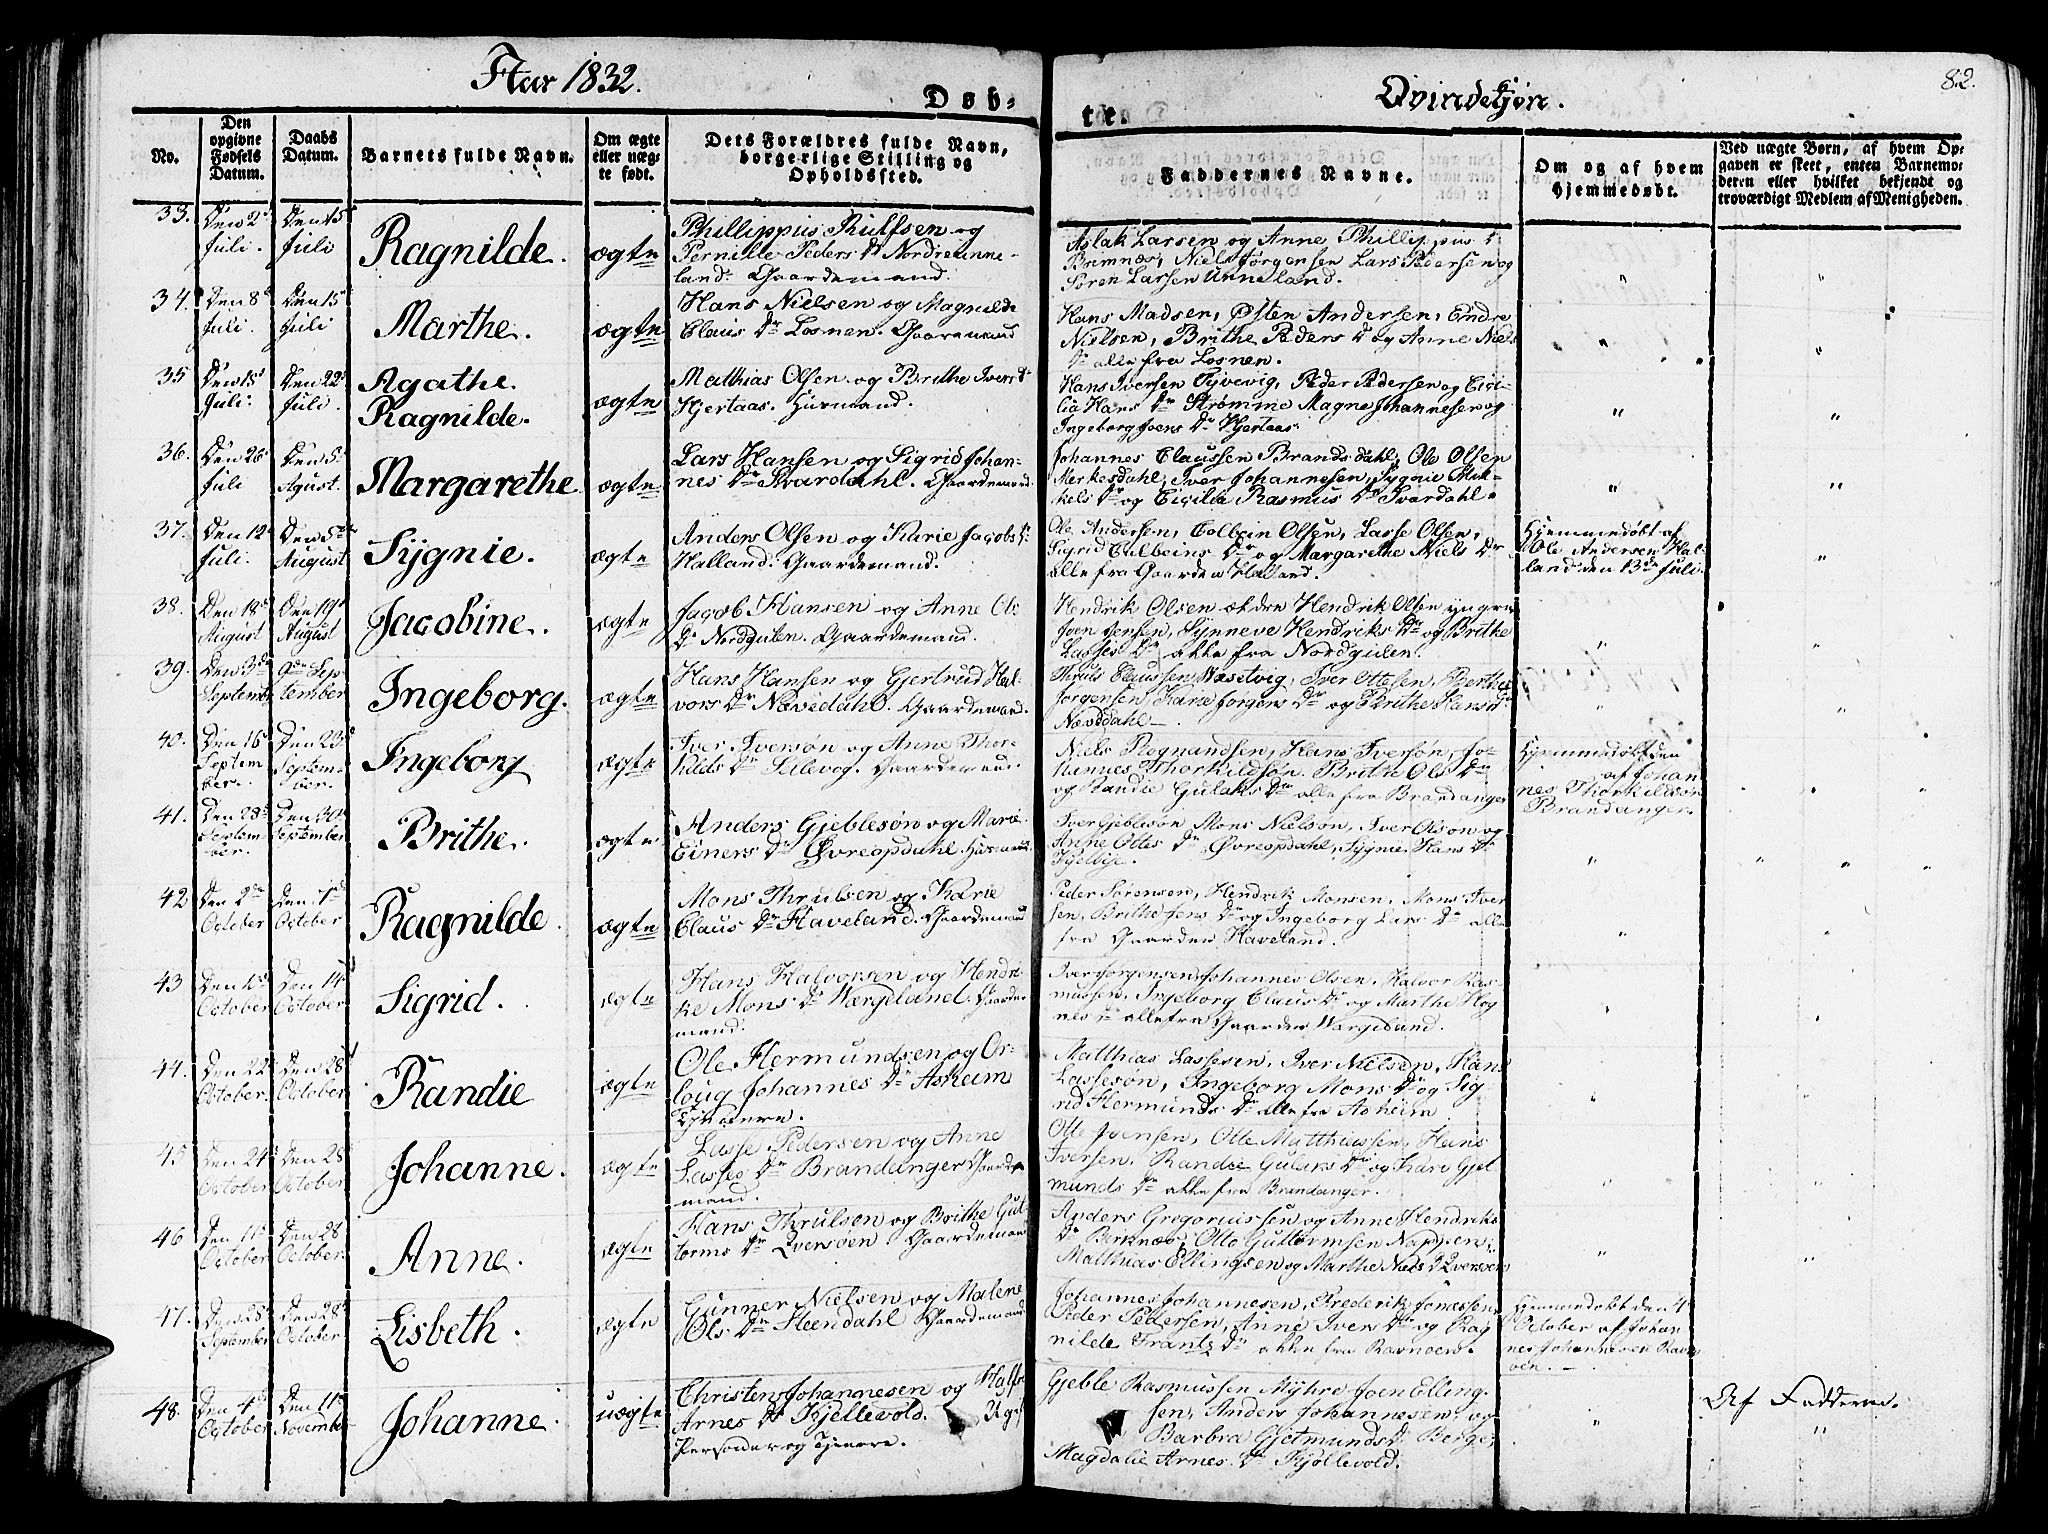 Aar 1832.
Döb-
te.
Qvindekjøn.
82.
No.
Den
opgivne
Fødsels
Datum.
Daabs
Datum.
Barnets fulde Navn.
Om ægte
eller uæg-
te født.
Dets Forældres fulde Navn,
borgerlige Stilling og
Opholdssted.
Faddernes Navne.
Om og af hvem
hjemmedøbt.
Ved uægte Børn, af hvem Op-
gaven er skeet, enten Barnemo-
deren eller hvilket bekjendt og
troværdigt Medlem af Menigheden.
33.
Den 2d
Juli.
Den 15d
Juli
Ragnilde.
ægte
Phillippus Rulfsen og
Pernille Peders Dr Nordreunne-
land. Gaardemand.
Aslak Larsen og Anne Phillippus
Brimnæs, Niels Jørgensen Lars Pedersen og
Søren Larsen Unneland.
34.
Den 8d
Juli.
Den 15d
Juli
Marthe.
ægte
Hans Nielsen og Magnilde
Claus Dr Losnen. Gaardemand
Hans Madsen, Østen Andersen, Endre
Nielsen, Brithe Peders Dr og Anne Niels
Dr alle fra Losnen.
35
Den 15d
Juli.
Den 22d
Juli.
Agathe
Ragnilde.
ægte
Matthias Olsen og Brithe Ivers Dr
Hjertaas. Husmand.
Hans Iversen Tyvevig, Peder Pedersen og Cici-
lia Hans Dr Strømme Magne Johannesen og
Ingeborg Joens Dr Hjertaas.
36.
Den 26d
Juli
Den 5d
Agust.
Margarethe
ægte
Lars Hansen og Sigrid Johan-
nes Dr Svardahl. Gaardemand.
Johannes Claussen Brandsdahl, Ole Olsen
Merkesdahl, Iver Johannesen, Sygnie Mik-
kels Dr og Cicilia Rasmus Dr Svardahl.
37.
Den 12d
Juli.
Den 5de
August
Sygnie.
ægte
Anders Olsen og Karie Jacobs Dr
Halland. Gaardemand.
Ole Andersen, Colbein Olsen, Lasse Olsen,
Sigrid Culbeins Dr og Margarethe Niels Dr
alle fra Gaarden Halland.
Hjemmedøbt af
Ole Andersen Hal-
land den 13de Juli.
38.
Den 12d
August
Den 19d
August
Jacobine.
ægte
Jacob Hansen og Anne Ole
Dr Nordgulen. Gaardemand.
Hendrik Olsen ældre Hendrik Olsen yngre
Joen Jensen, Synneve Hendriks Dr og Brithe
Lasses Dr alle fra Nordgulen.
39.
Den 3de
September
9de Sep-
tember
Ingeborg.
ægte
Hans Hansen og Gjertrud Hal-
vors Dr Nævedahl. Gaardemand.
Thruls Claussen Wasetvig, Iver Ottesen, Berthe
Jørgensen, Karie Jørgens Dr og Brithe Hans Dr
Nævedahl.
40.
Den 16d
Septem
ber.
Den 23d
Septem-
ber.
Ingeborg
ægte
Iver Iversøn og Anne Thor-
kilds Dr Sellevog. Gaardemand.
Niels Rognandsen, Hans Iversøn, Jo-
hannes Thorkildsøn. Brithe Ols Dr
og Randie Gulaks Dr alle fra Brandanger
Hjemmedøbt den
af Johan
nes Thorkildsøn
Brandanger.
41.
Den 28d
Septem
ber.
Den 30d
September
Brithe.
ægte
Anders Gjeblesøn og Marie
Einers Dr Øvreopdahl. Husmand.
Iver Gjeblesøn Mons Nielsøn, Iver Olsøn og
Anne Ottes Dr Øvreopdahl, Sygnie Hans Dr
42
Den 2de
October
Den 7de
October
Ragnilde.
ægte
Mons Thrulsen og Karie
Claus Dr Haveland. Gaardemand
Peder Sørensen, Hendrik Monsen, Mons Iver
sen, Brithe Jens Dr og Ingeborg Lars Dr alle
fra Gaarden Haveland.
43
October
Den 14d
October
Sigrid.
ægte
Hans Halvorsen og Hendri-
ke Mons Dr Wærgeland. Gaarde
mand.
Iver Jørgensen, Johannes Olsen, Halvor Ras-
mussen, Ingeborg Claus Dr og Marthe Hog
nes Dr alle fra Gaarden Wærgeland.
44.
Den 22d
October.
Den 28d
October
Randie
ægte
Ole Hermundsen og Or-
loug Johannes Dr Asheim
Tjenere.
Matthias Lassesen, Iver Nielsen, Hans
Lassesøn, Ingeborg Mons Dr og Sig
rid Hermunds Dr alle fra Asheim
45
Den 24d
October
Den 28d
October
Johanne.
ægte
Lasse Pedersen og Anne
Lasses Dr Brandanger Gaarde
mand.
Otte Joensen, Otte Matthiassen, Hans
Iversen. Randie Gulaks Dr og Kari Gjet
munds Dr alle fra Brandanger.
46
Den 11d
October
Den 28
October
Anne.
ægte
Hans Thrulsen og Brithe Gut
torms Dr Qversøen Gaardemand
Anders Gregoriussen og Anne Hendriks
Dr Birknæs, Otto Guttormsen Nappen,
Matthias Ellingsen og Marthe Niels Dr Qversøen
47.
Den 25d
September
Den 28d
October
Lisbeth.
ægte
Gunner Nielsen og Malene
Ols Dr Steendahl Gaardemand
Johannes Johannesen, Frederik Jonassen
Peder Pedersen, Anne Ivers Dr og Rag
nilde Frants Dr alle fra Ravnøen.
Hjemmedøbt den 4d
October af Johan
nes Johannesen Ravn
øen.
48.
Den 4d
October
Den 11d
November
Johanne.
uægte
Christen Johannesen og
Arnes Dr Kjellevold.
Personer og Tjenere.
Gjeble Rasmussen Myhre Joen Elling-
sen, Anders Johannesen, og
Barbra Gjetmunds Dr Berge,
Magdalie Arnes Dr Kjøllevold.
Af Fadderne.